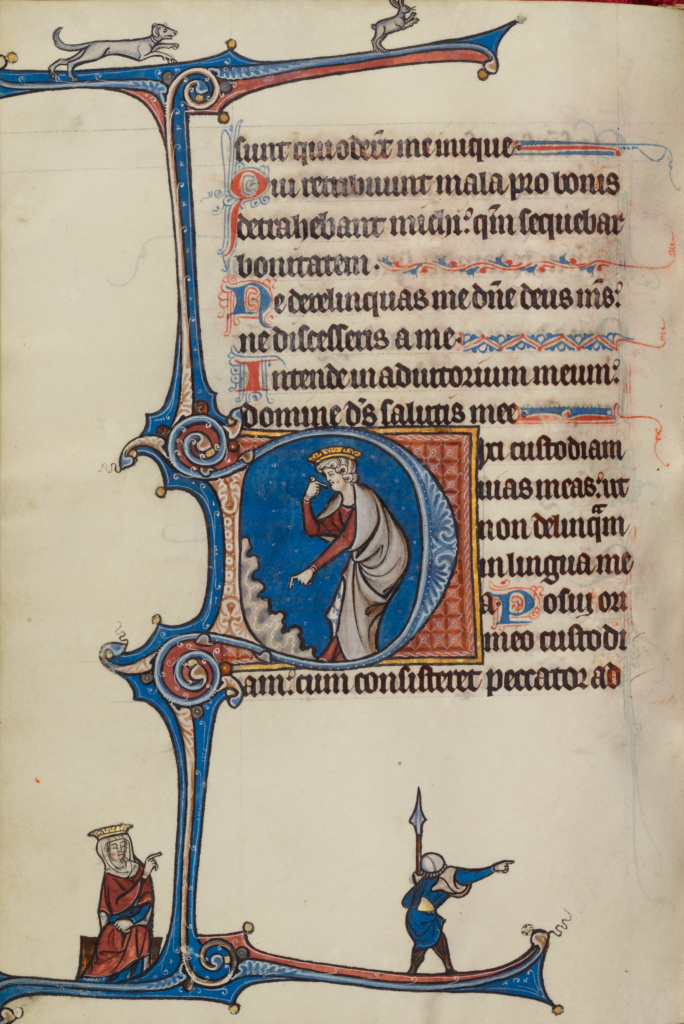 sunt qui oder̄t me inique
Qui retribuunt mala pro bonis
detrahebant michi: qm̄ sequebar
bonitatem.
Ne derelinquas me dn̄e deus ms̄:
ne discesseris a me.
Intende in adiutorium meum:
domine ds̄ salutis mee
Dixi custodiam
uias meas: ut
non delinq̄m
in lingua me
a. Posui ori
meo custodi
am: cum consisteret peccator ad